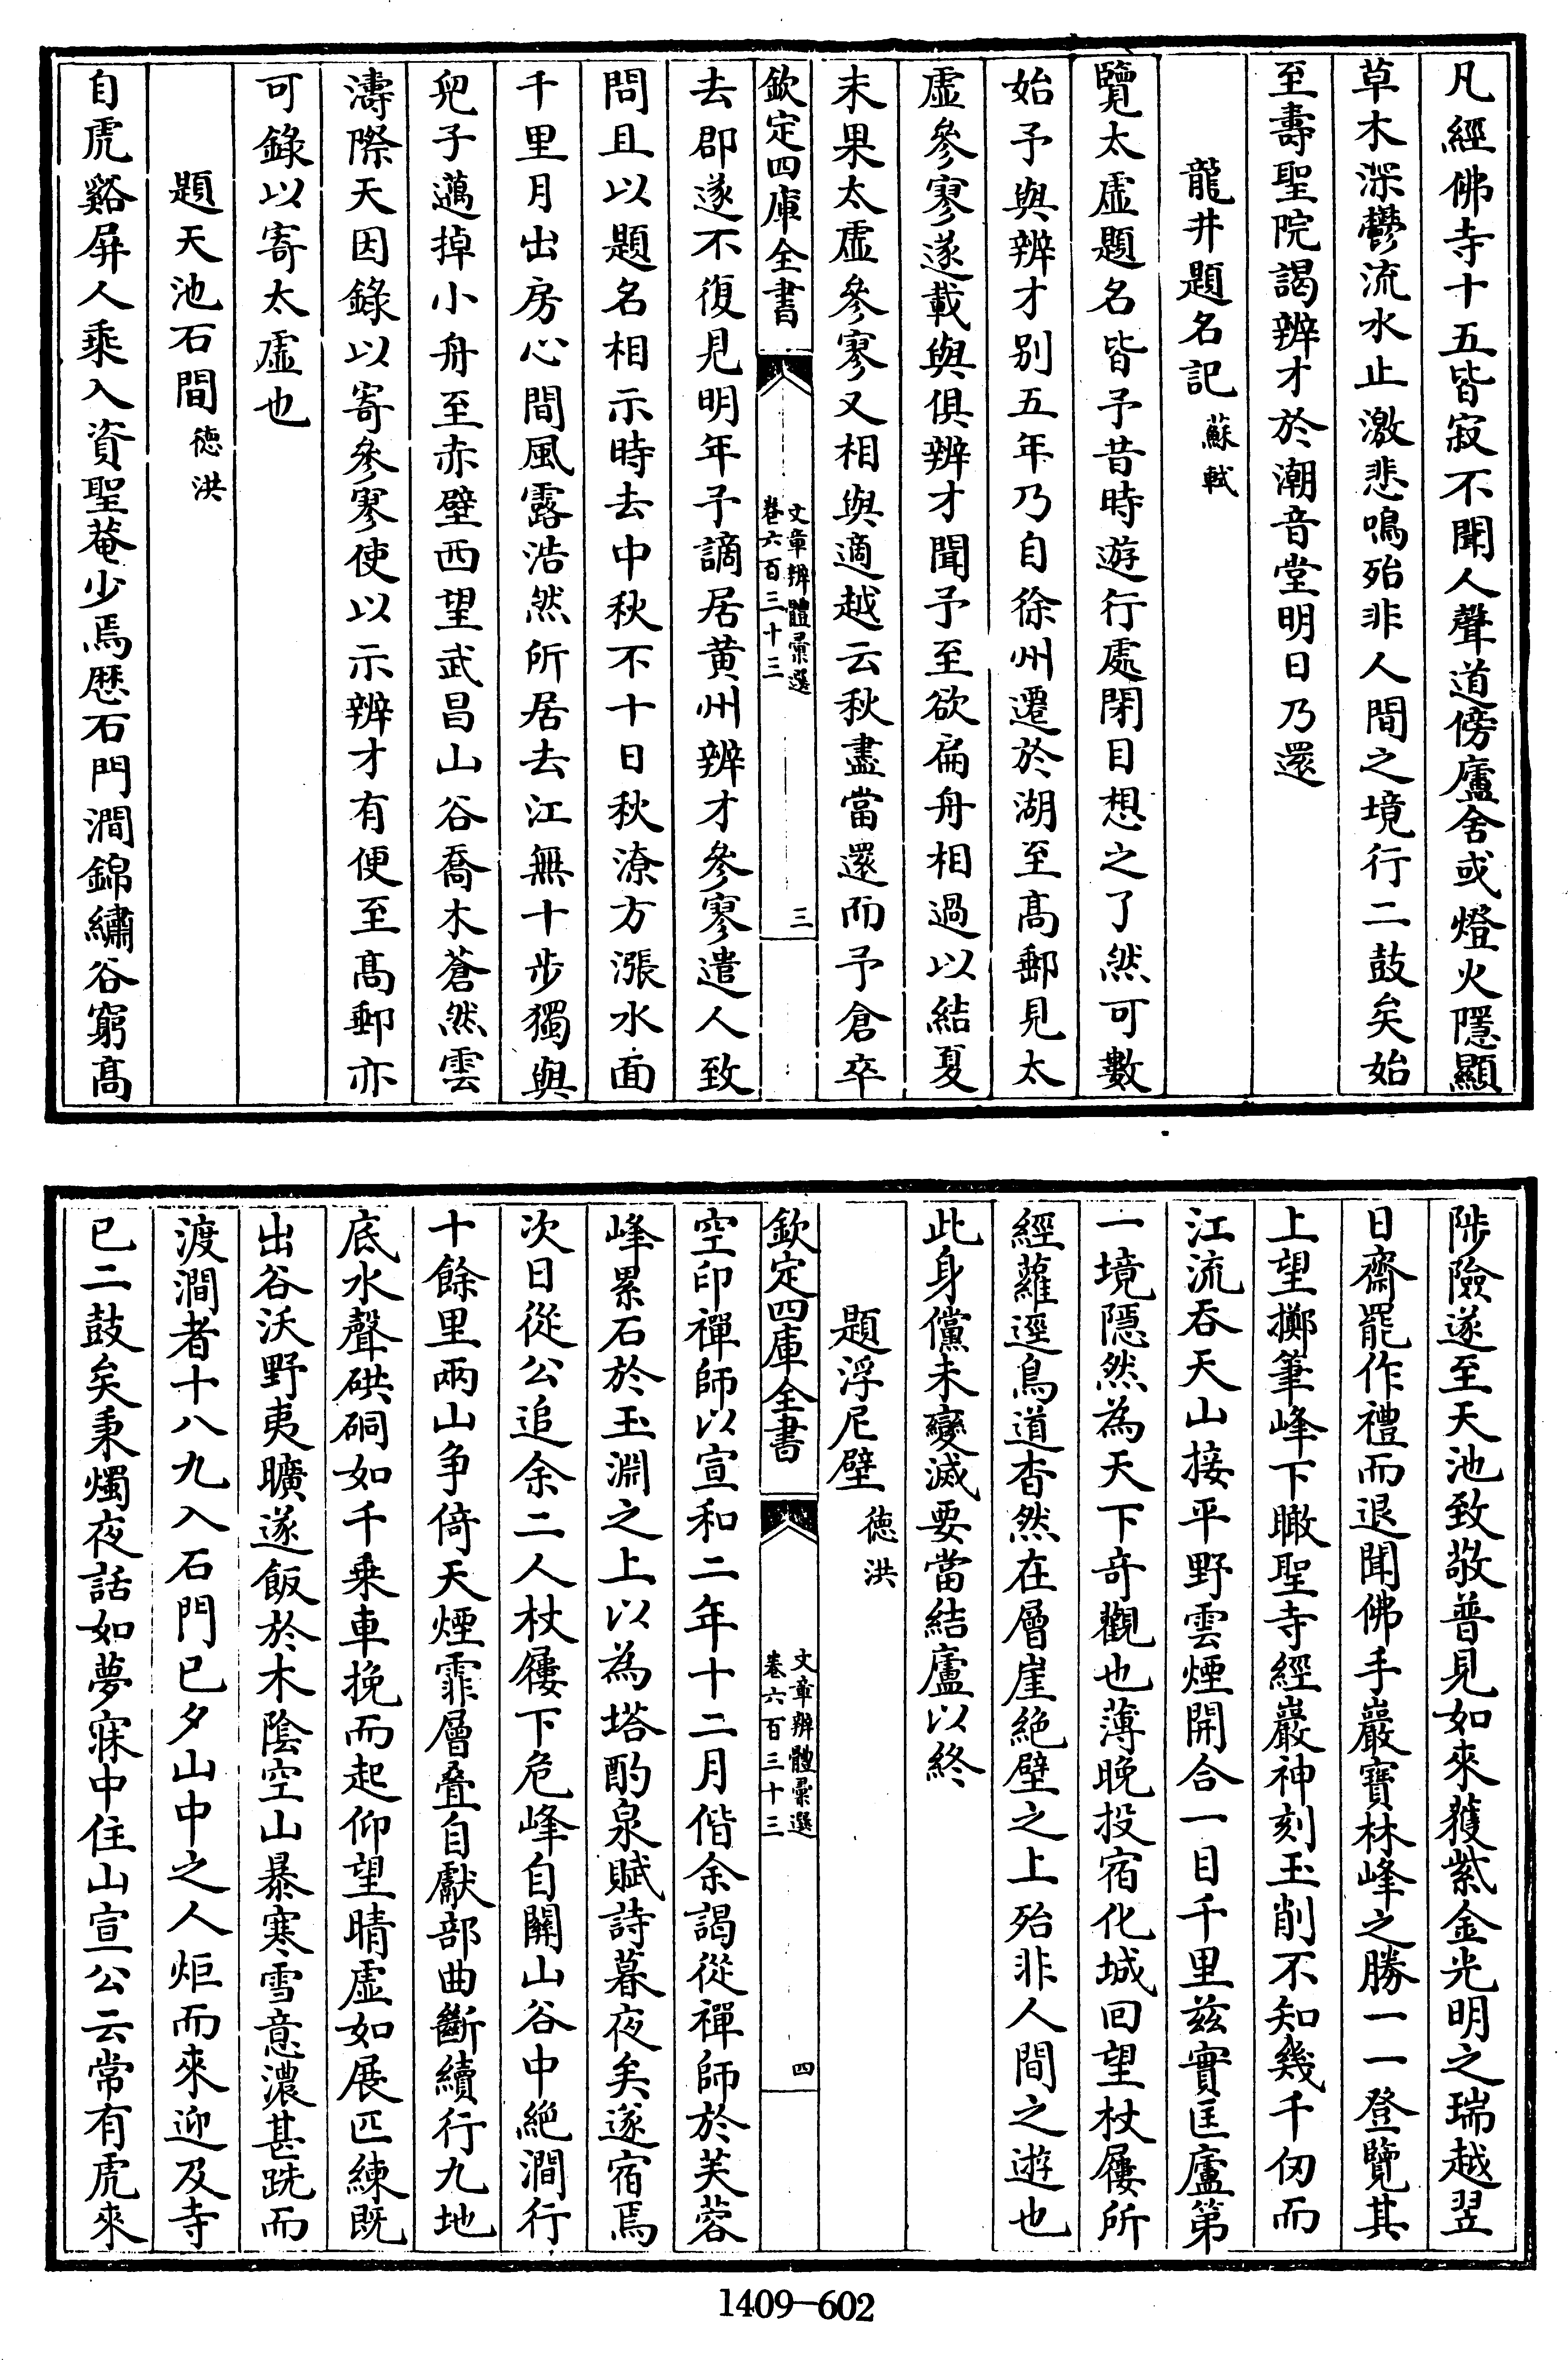 凡經佛寺十五皆寂不聞人聲道傍廬舍或燈火隱顯
草木深鬱流水止激悲鳴殆非人間之境行二鼓矣始
至壽聖院謁辨才於潮音堂明日乃還
龍井題名記 蘇軾
覽太虛題名皆予昔時遊行處閉目想之了然可數
始予與辨才别五年乃自徐州遷於湖至髙郵見太
虛參寥遂載與俱辨才聞予至欲扁舟相過以結夏
未果太虛參寥又相與適越云秋盡當還而予倉卒
欽定四庫全書
文章辨體彙選
卷六百三十三
三
去郡遂不復見明年予謫居黄州辨才參寥遣人致
問且以題名相示時去中秋不十日秋潦方漲水面
千里月出房心間風露浩然所居去江無十步獨與
兒子邁掉小舟至赤壁西望武昌山谷喬木蒼然雲
濤際天因錄以寄參寥使以示辨才有便至髙郵亦
可錄以寄太虛也
題天池石間 徳洪
自虎谿屏人乘入資聖菴少焉歴石門澗錦繡谷窮髙
陟險遂至天池致敬普見如來獲紫金光明之瑞越翌
日齋罷作禮而退聞佛手巖寶林峰之勝一一登覽其
上望擲筆峰下瞰聖寺經巖神刻玉削不知幾千仞而
江流吞天山接平野雲煙開合一目千里兹實匡廬第
一境隱然為天下竒觀也薄晚投宿化城回望杖屨所
經蘿逕鳥道杳然在層崖絶壁之上殆非人間之遊也
此身儻未變滅要當結廬以終
題浮尼壁 徳洪
欽定四庫全書
文章辨體彙選
卷六百三十三
四
空印禪師以宣和二年十二月偕余謁從禪師於芙蓉
峰累石於玉淵之上以為塔酌泉賦詩暮夜矣遂宿焉
次日從公追余二人杖屨下危峰自關山谷中絶澗行
十餘里兩山争倚天煙霏層疊自獻部曲斷續行九地
底水聲硔硐如千乗車挽而起仰望晴虛如展匹練既
出谷沃野夷曠遂飯於木陰空山暴寒雪意濃甚跣而
渡澗者十八九入石門已夕山中之人炬而來迎及寺
已二鼓矣秉燭夜話如夢寐中住山宣公云常有虎來
1409—602